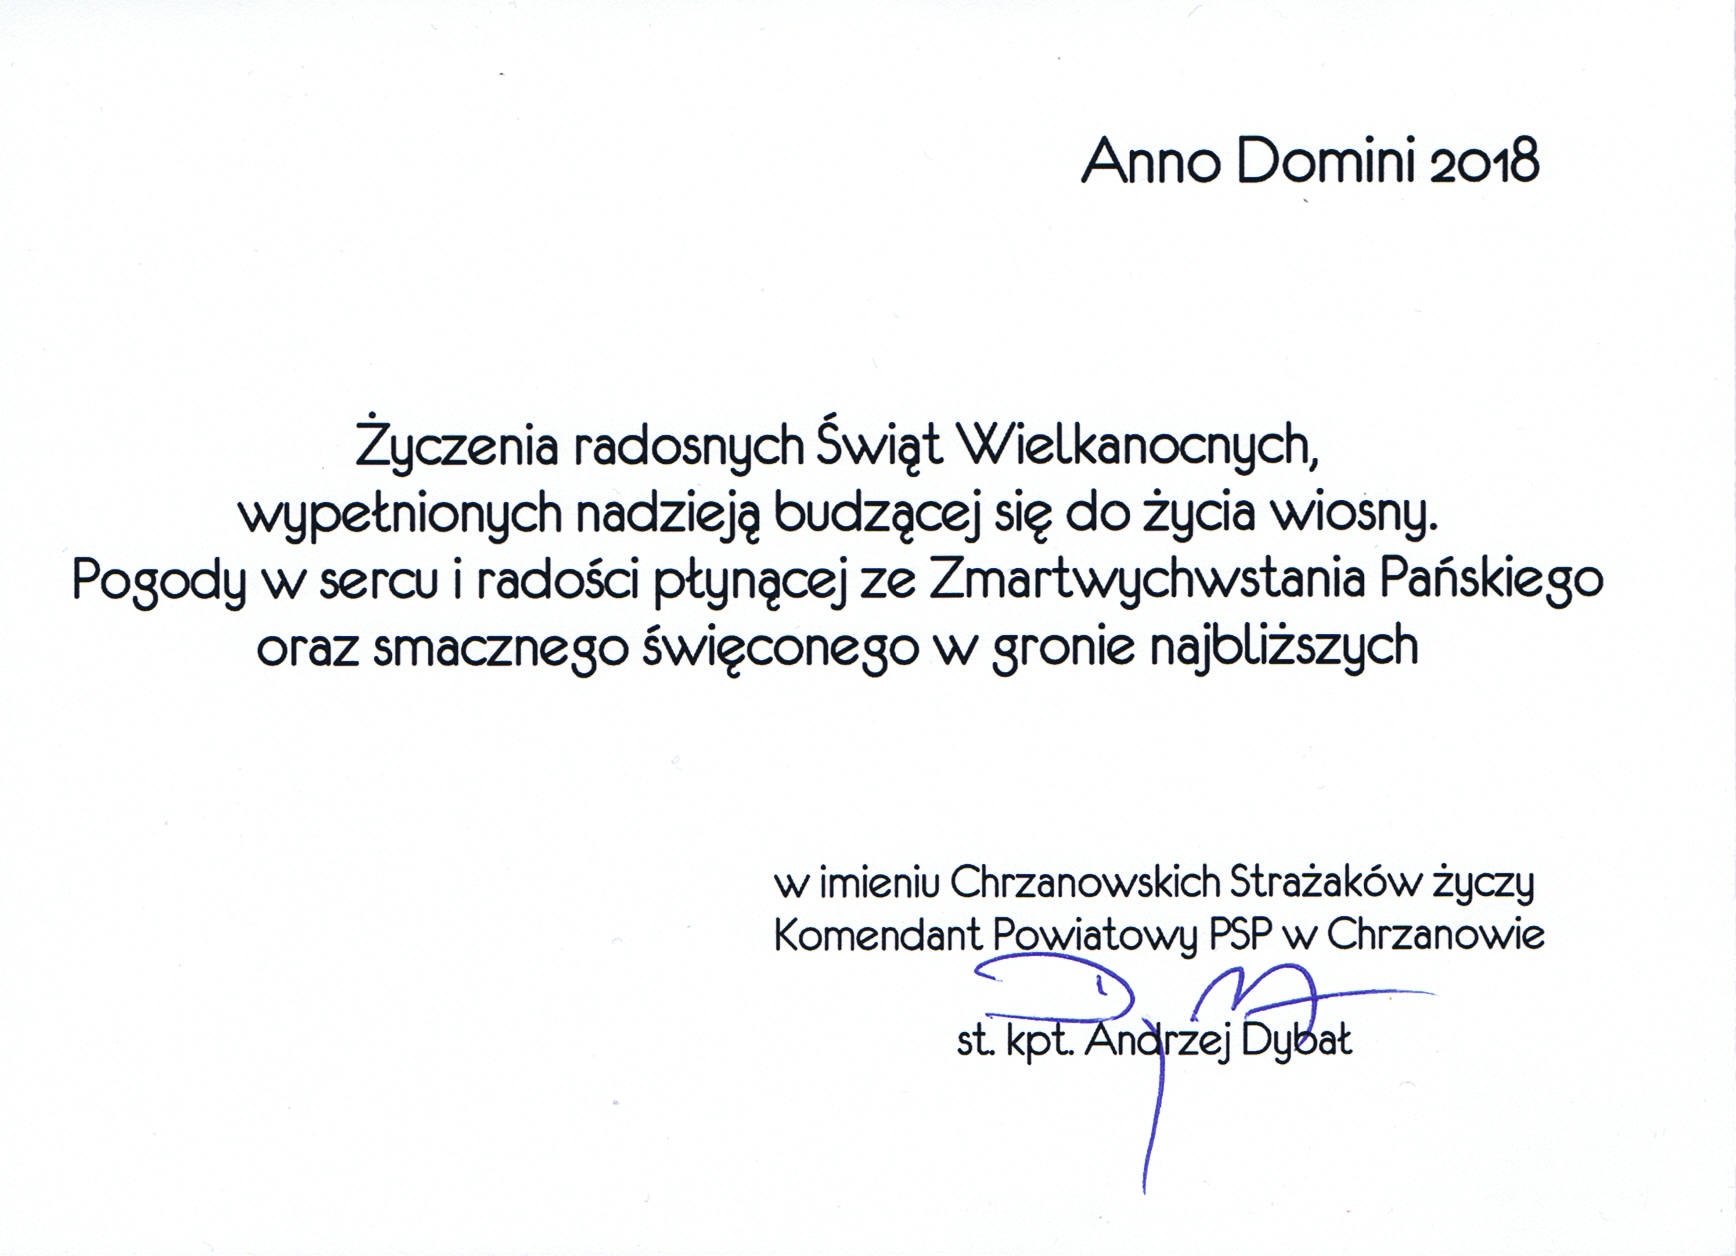 Anno Domini 2018
Życzenia radosnych Świąt Wielkanocnych,
wypełnionych nadzieją budzącej się do życia wiosny.
Pogody w sercu i radości płynącej ze Zmartwychwstania Pańskiego
oraz smacznego święconego w gronie najbliższych
w imieniu Chrzanowskich Strażaków życzy
Komendant Powiatowy PSP w Chrzanowie
st. kpt. Andrzej Dybał